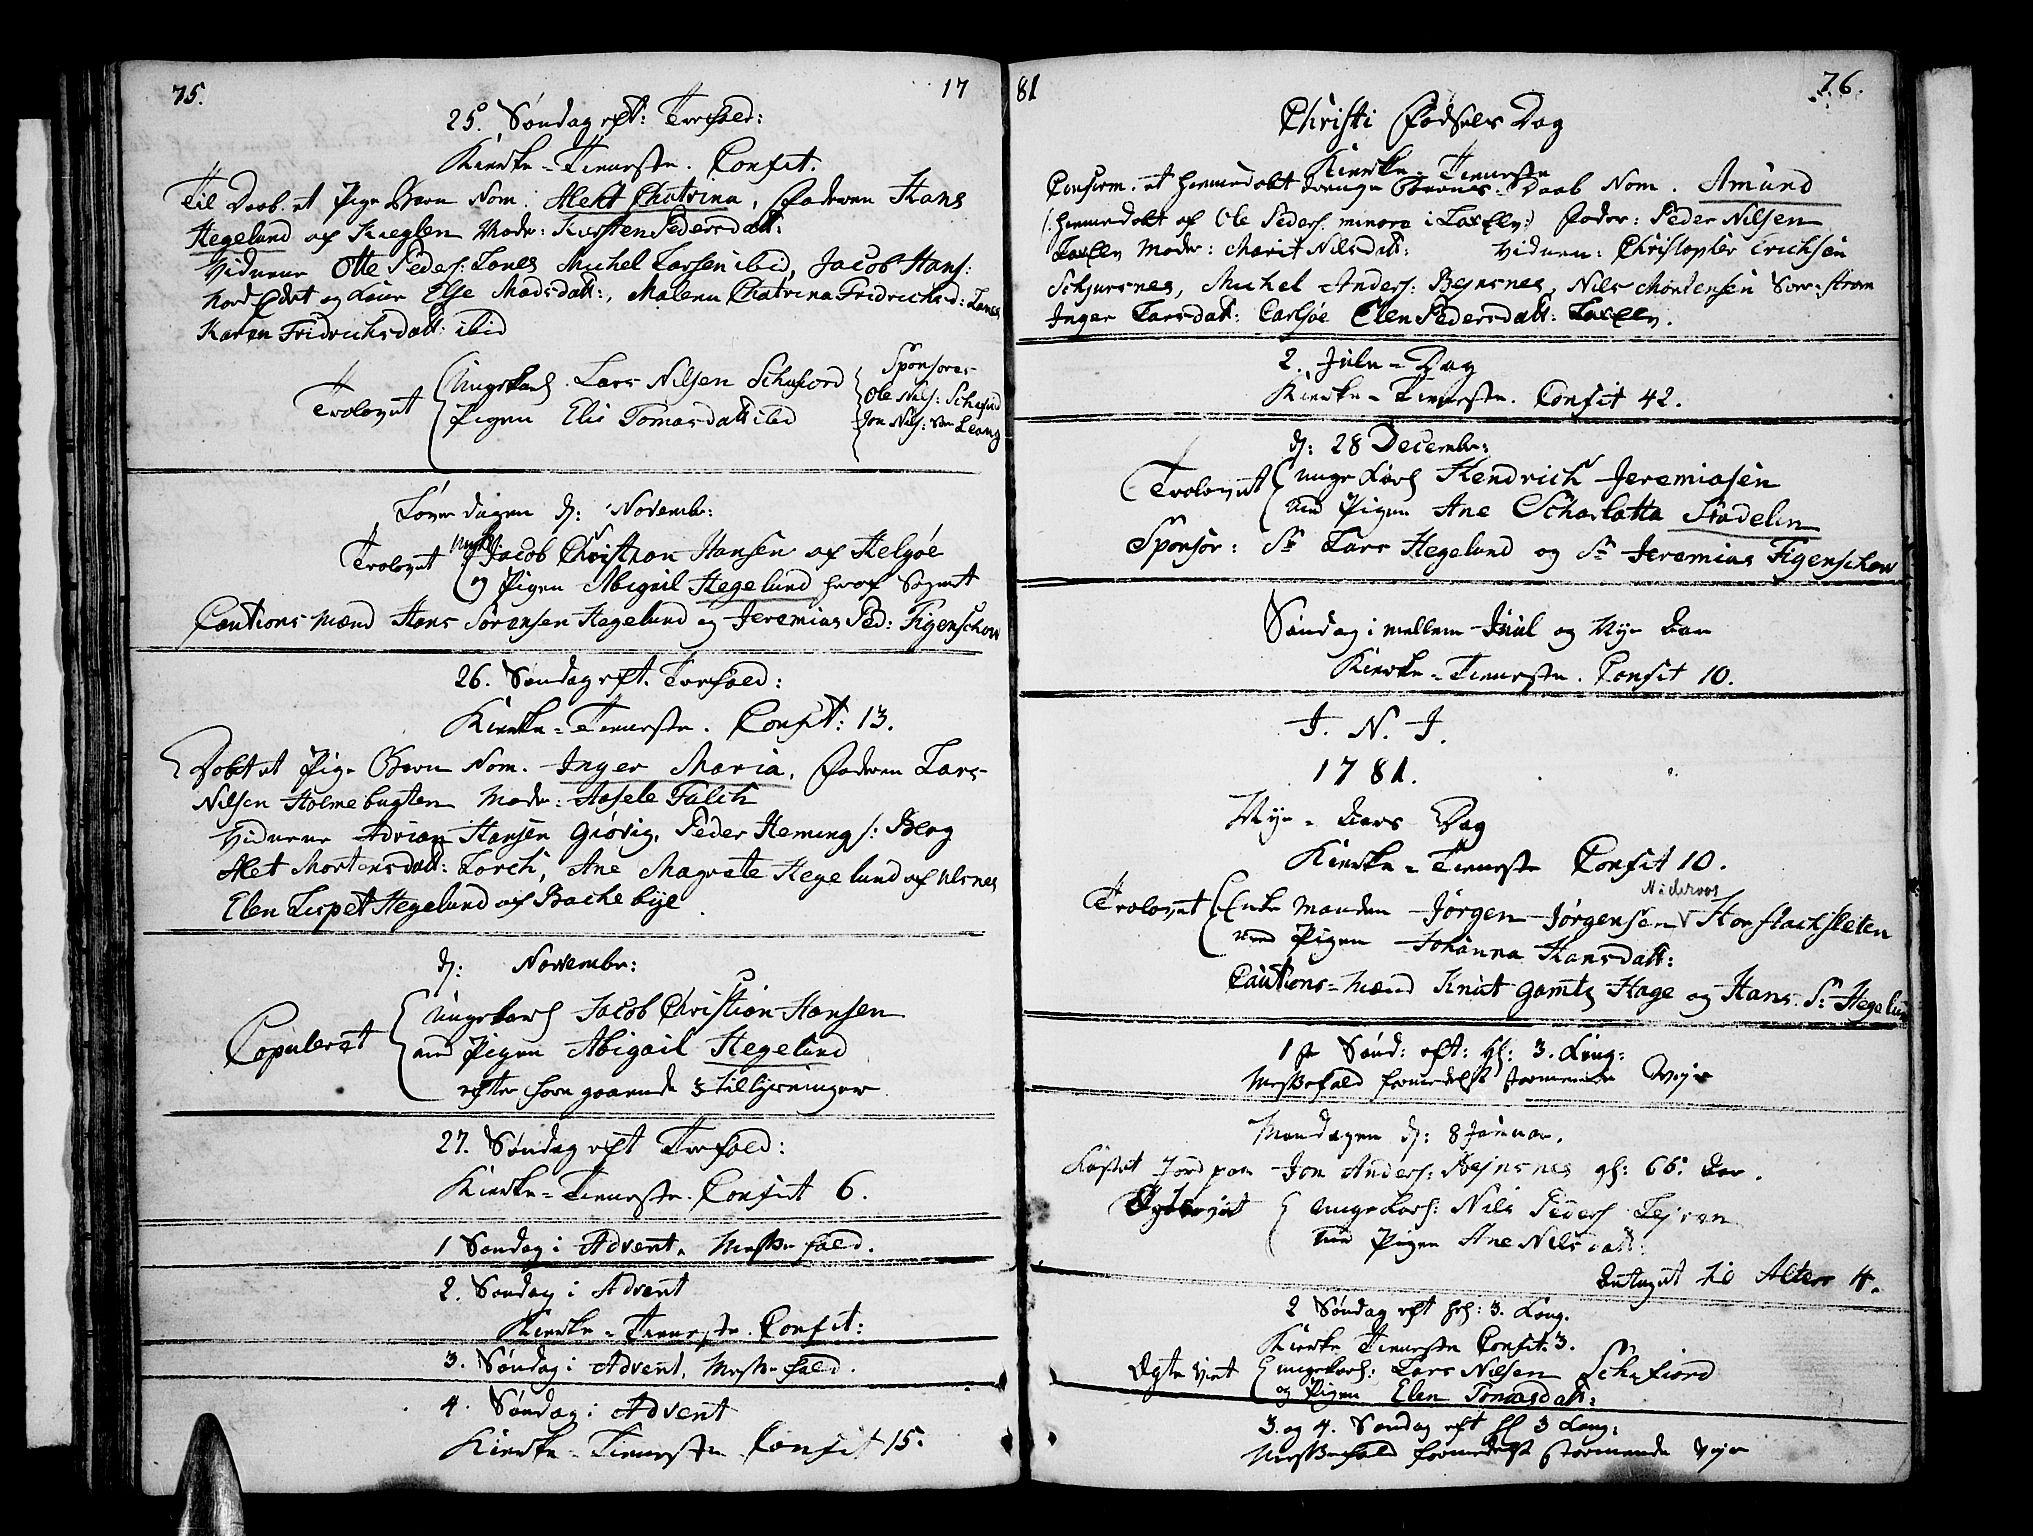 75. 17
25. Søndag eft: Trefold:
Kirke-Tieneste. Confit.
Til Daab et Pige Barn Nom. Alett Chatrina, Faderen Hans
Hegelund af Moder: Kirsten Pedersdatt:
Vidnerne Otte Peders: Lanes Michel Larsen ibid, Jacob Hans:
Nord og Else Madsdatt:, Malena Chatrina Fridrichsd: Lanes
Karen Fridrichsdatt: ibid
Trolovet Ungkarl Lars Nilsen Schufiord
Pigen Elis Tomasdatt ibid
Sponsores
Ole Nils: Schufiord
Jon Nils:
Løverdagen d: Novembr:
Trolovet Ungk: Jacob Christian Hansen af Helgøe
og Pigen Abigail Hegelund her af Sognet
Cautions Mænd Hans Sørensen Hegelund og Jeremias Ped: Figenschow
26. Søndag eft. Trefold:
Kirke-Tieneste. Confit: 13.
Døbt et Pige Barn Nom. Inger Maria. Faderen Lars
Nilsen Holmebugten Moder: Falch
Vidnerne Adrian Hansen Giøvig, Peder Heming s: Berg
Alet Mortensdatt: Lorch, Ane Magrete Hegelund af Ulsnes
Elen Lispet Hegelund af Backebye.
d: Novembr:
Copuleret Ungkarl Jacob Christian Hansen
med Pigen Abigail Hegelund
efter foregaaende 3 tillysninger
27. Søndag eft Trefold:
Kirke-Tieneste. Confit 6.
1 Søndag i Advent. Messefald.
2. Søndag i Advent
Kirke-Tieneste. Confit:
3. Søndag i Advent. Messefald.
4. Søndag i Advent
Kirke-Tieneste Confit 15.
81 76.
Christi Fødsels Dag
Kirke-Tieneste
Confirm. et hiemedøbt drenge Barnes Daab Nom. Amund
(: hiemedøbt af Ole Peders. minore i Laxelv:) Fader: Peder Nilsen
Laxelv Moder: Marit Nilsdatt: Vidner: Christopher Erichsen
Schjursnes, Michel Anders: Bejnsnes, Nils Mortensen Sørstrøm
Inger Larsdatt: Carlsøe Elen Pedersdatt: Laxelv.
2. Jule-Dag
Kirke-Tieneste. Confit 42.
d: 28 December:
Trolovet Ungekarl Hendrich Jeremiasen
med Pigen Ane Scharlotta
Sponsor: Sr. Lars Hegelund og Sr. Jeremias Figenschow
Søndag imellem Juul og Nye Aar
Kirke-Tieneste. Confit 10.
J. N. J.
1781.
Nye-Aars Dag
Kirke-Tieneste Confit 10.
Trolovet Enkemanden Jørgen Jørgensen
med Pigen Johanna Hansdatt:
Cautions-Mænd Knut Gamts Hage og Hans Sr. Hegelund
1ste Sønd: eft: hl: 3. Kong:
Messefald formedelst stormende Vejr
Mandagen d: 8 Januar.
Kastet Jord paa Jon Anders: Bejnsnes gl: 66. Aar.
Ungekarl: Nils Peders
med Pigen Ane Nilsdatt:
Antaget til Alters 4.
2 Søndag eft hel: 3. Kong.
Kirke Tieneste Confit. 3.
Ægteviet Ungekarl: Lars Nilsen Schufiord
og Pigen Elen Tomasdatt:
3. og 4. Søndag eft hl 3 Kong:
Messefald formedelst stormende Vejr